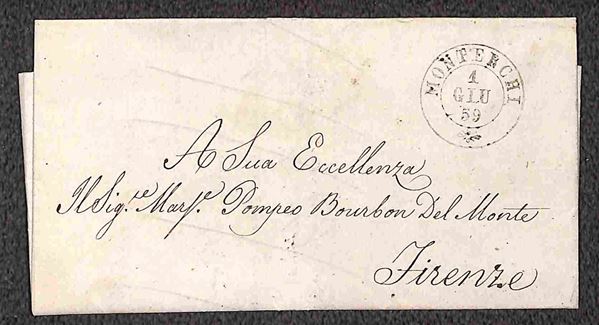 MONTERCHI
1
GIU
59
A Sua Eccellenza
Il Sig.re Mars.e Pompeo Bourbon Del Monte
Firenze